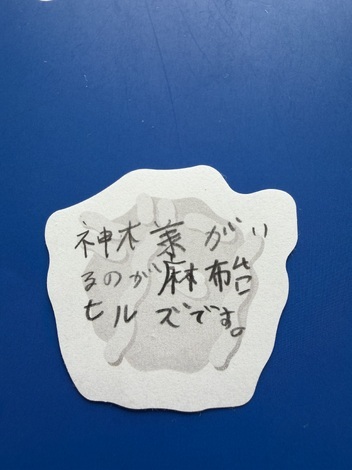 神木菜がい
るのが麻布台
ヒルズです。